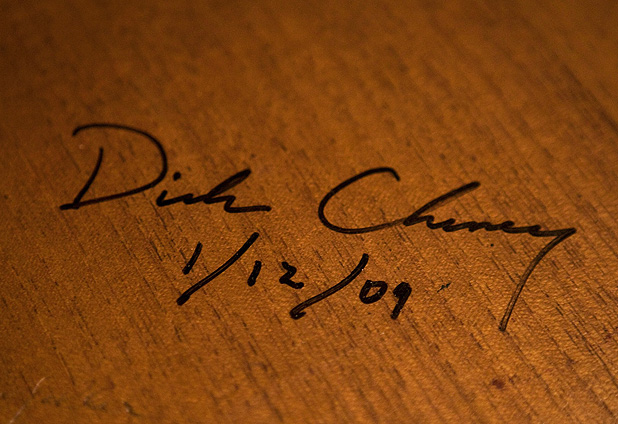 Dick Cheney
1/12/09